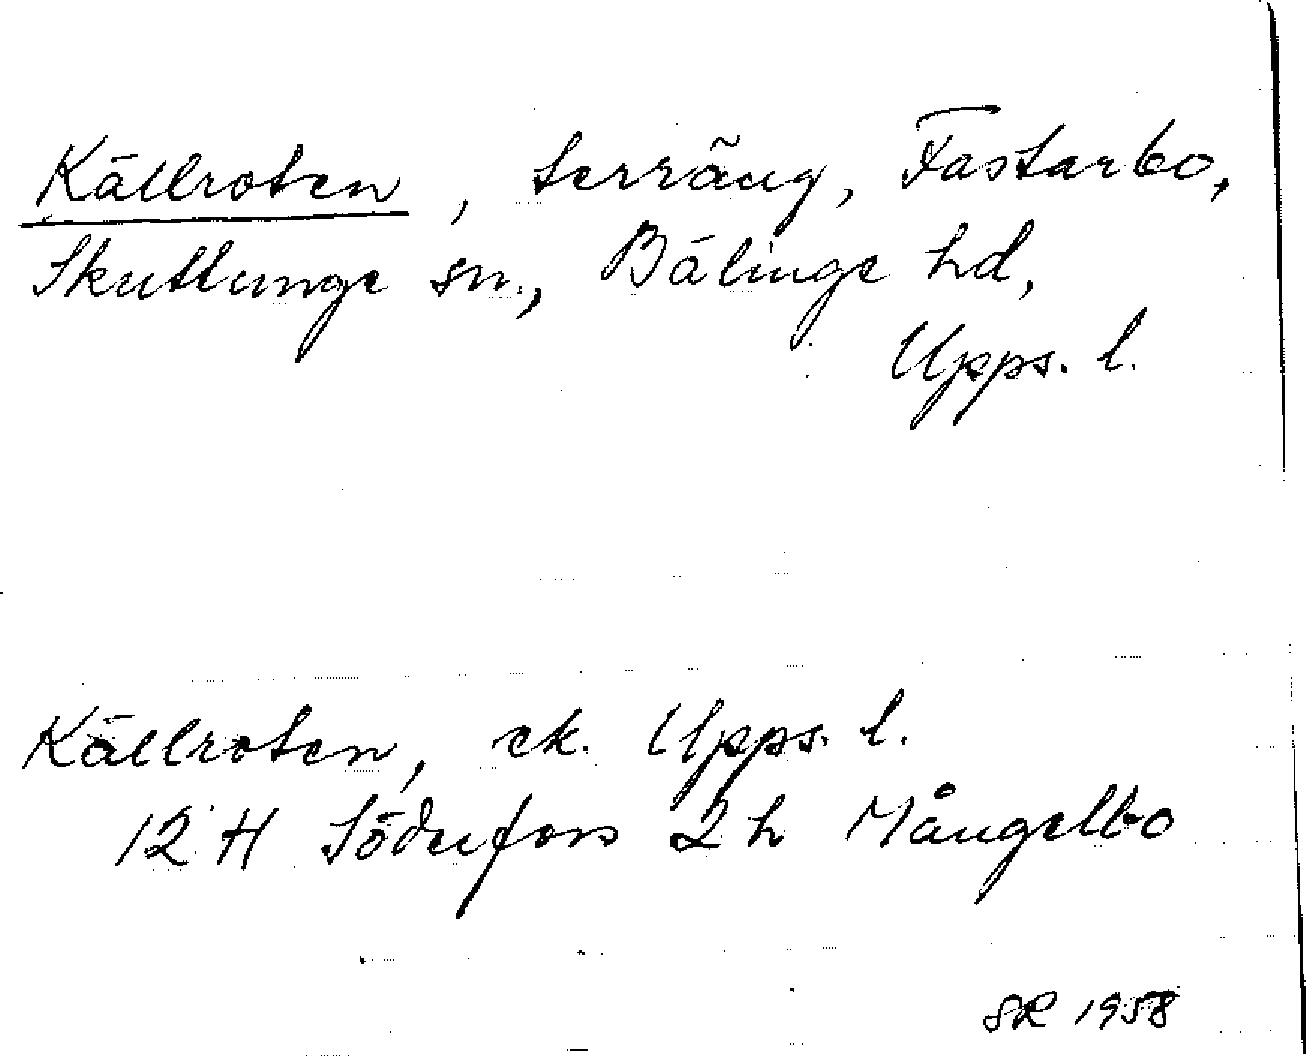 Källroten, terräng, Fastarbo,
Skuttunge sn., Bälinge hd,
Upps. l.
Källroten, ek. Upps. l.
12 H Söderfors 2 h Mångelbo
SR 1958